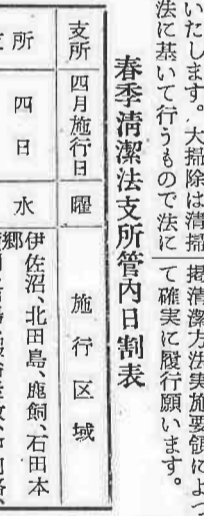 いたします。大掃除は清掃
法に基いて行うもので法に
掲清潔方法実施要領によっ
て確実に履行願います。
春季清潔法支所管内日割表
支所 四月施行日 曜 施行区域
所 四日 水 伊佐沼、北田島、鹿飼、石田本
郷